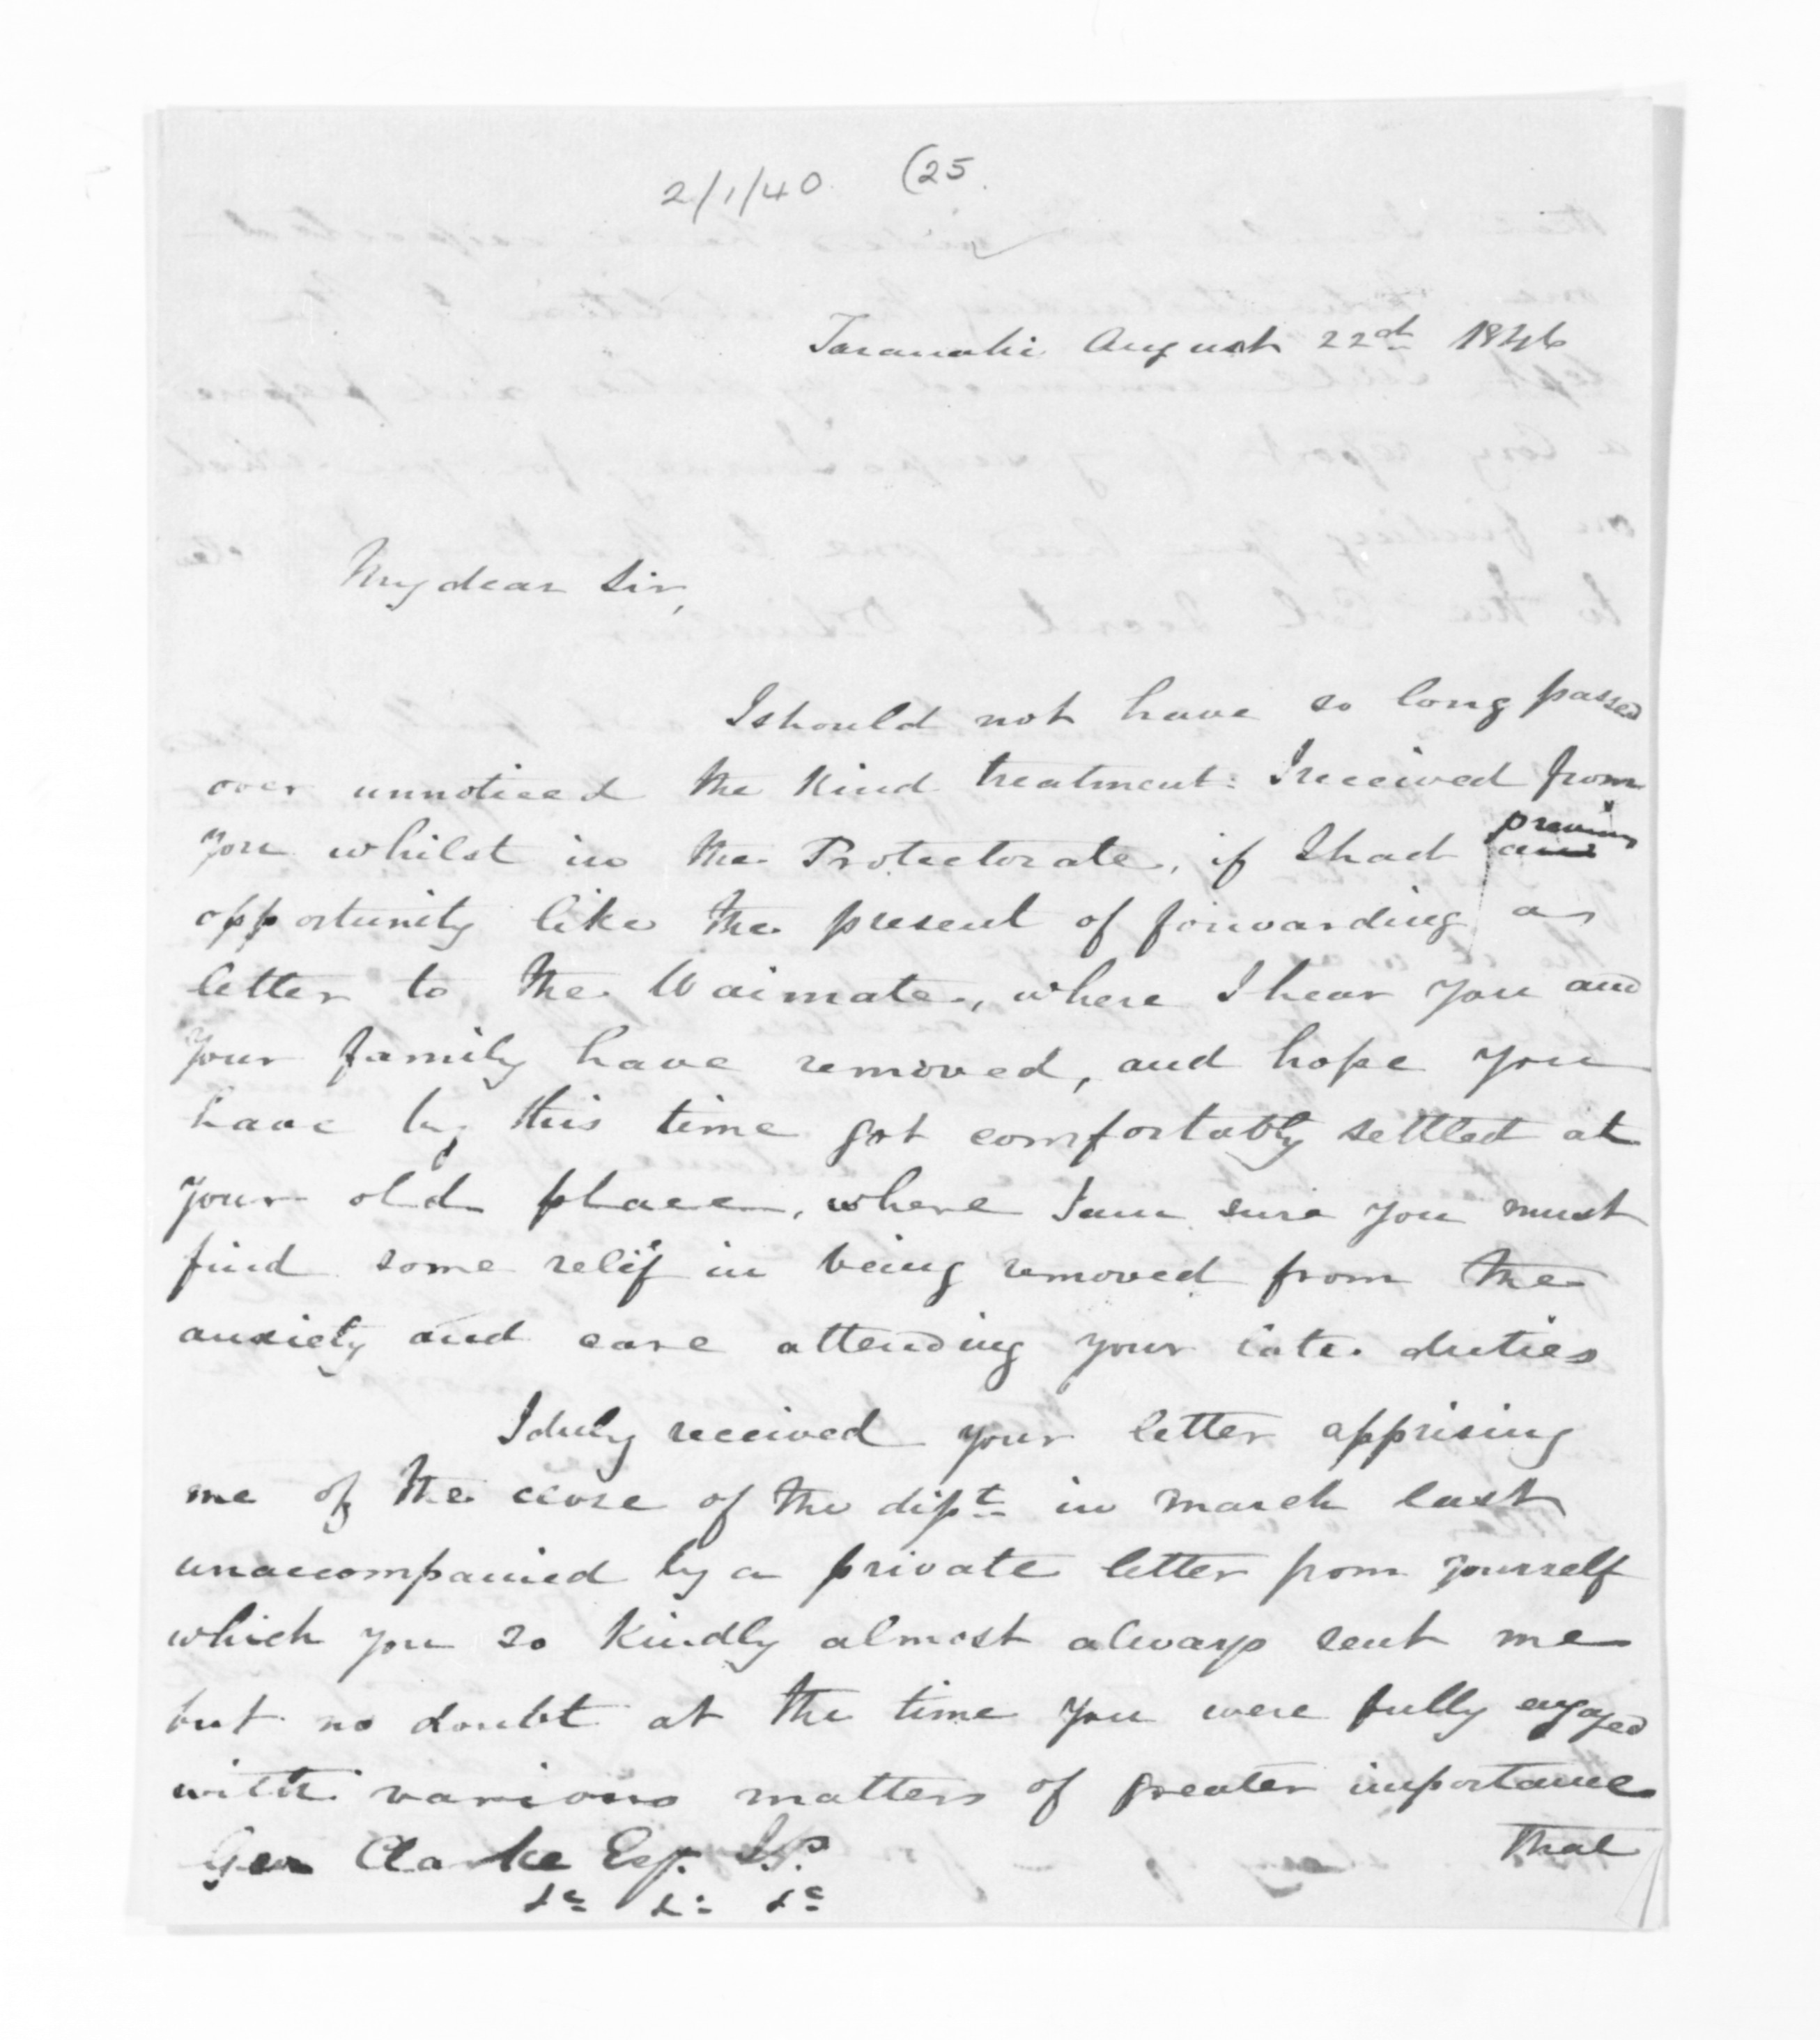 2/1/40 (25.
Taranaki August 22nd 1846
My dear Sir,
I should not have so long passed
over unnoticed the kind treatment I received from
you whilst in the Protectorate, if I had previous
opportunity like the present of forwarding a
letter to the Waimate, where I hear you and
your family have removed, and hope you
have by this time got comfortably settled at
your old place, where I am sure you must
find some relif in being removed from the
anxiety and care attending your late duties
I duly received your letter apprising
me of the close of the dipt. in march last
unaccompanied by a private letter from yourself
which you so kindly almost always sent me
but no doubt at the time you were fully engaged
with various matters of greater importance
that
Geo Clarke Esq. J.P.
&c &c &c